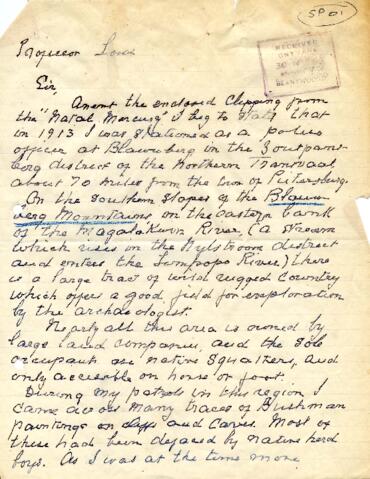 SP01
RECEIVED
Professor
Sir,
Anent the enclosed clipping from
the "Natal Mercury" I beg to state that
in 1913 I was stationed as a police
officer at Blauwberg in the Zoutpans-
berg district of the Northern Transvaal
about 70 miles from the town of Pietersburg.
On the Southern slopes of the Blauw-
berg Mountains on the Eastern bank
of the Magalakwin River, (a stream
which rises in the Nylstroom district
and enters the Limpopo River) there
is a large tract of wild rugged country
which offers a good field for exploration
by the archaeologist.
Nearly all this area is owned by
large land companies, and the sole
occupants are native squatters, and
only accessible on horse or foot.
During my patrols in this region I
came across many traces of Bushman
paintings on cliffs and caves. Most of
these had been defaced by native herd
boys. As I was at the time more